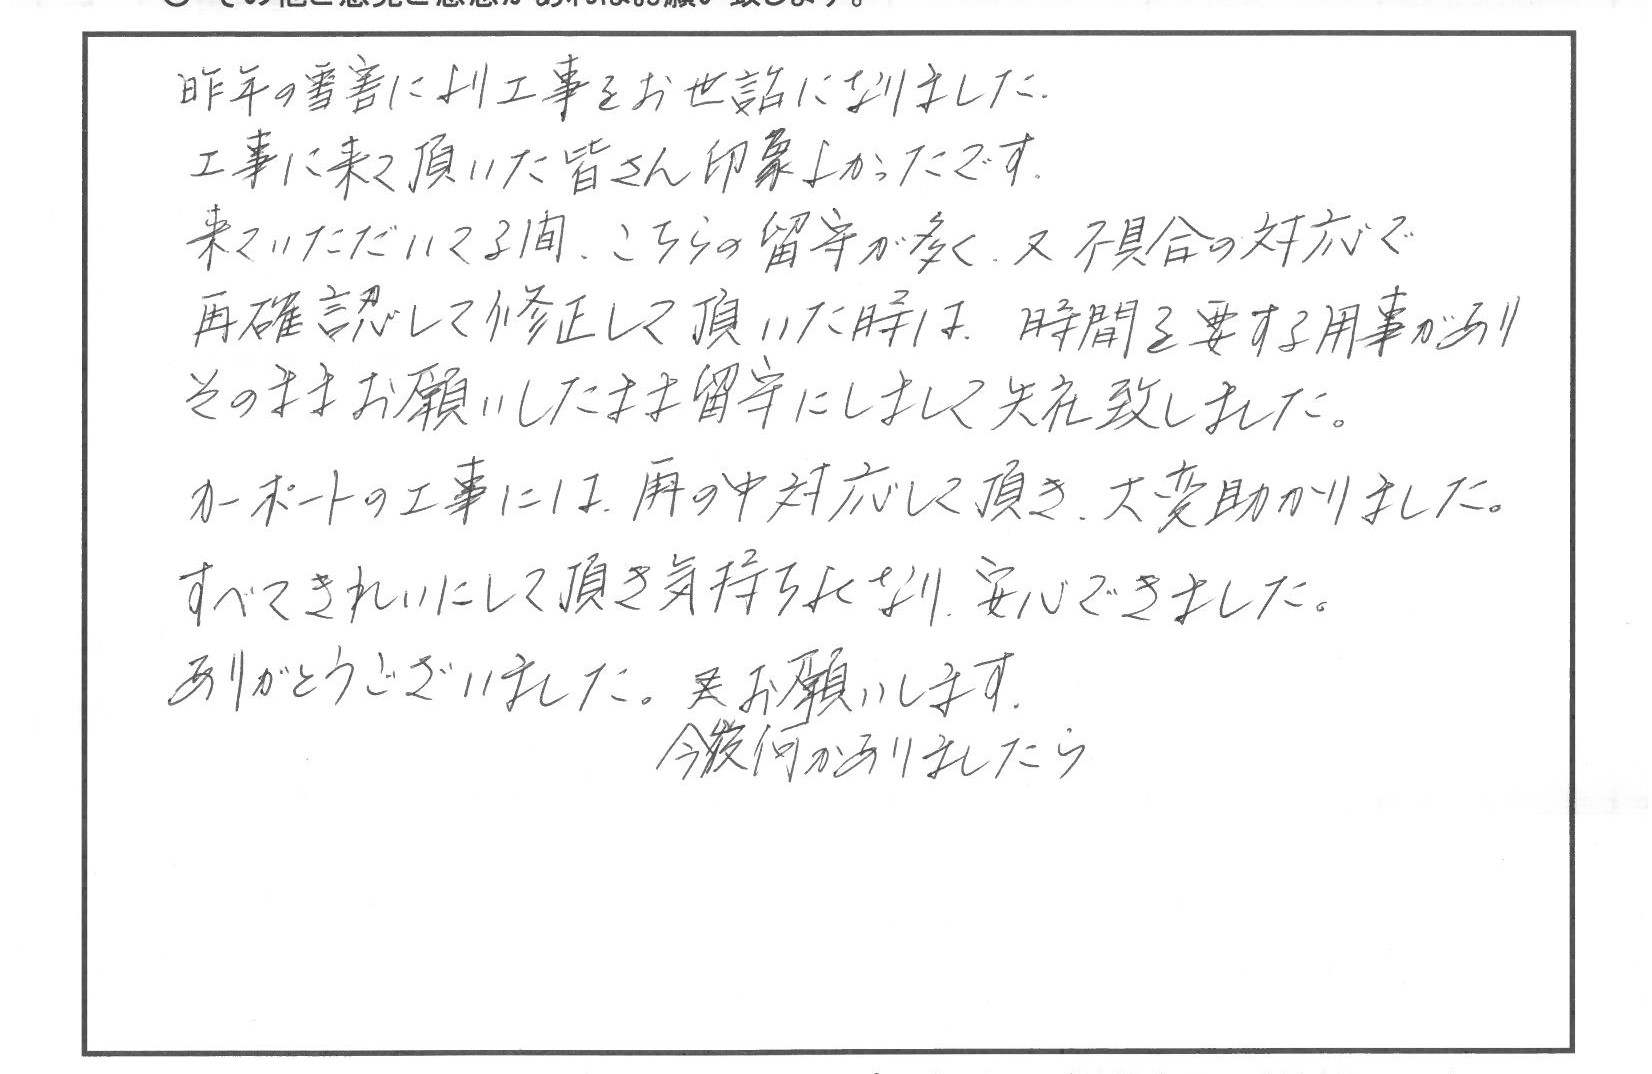 その他ご意見ご感想があればお願い致します。
昨年の雪害により工事をお世話になりました.
工事に来て頂いた皆さん印象よかったです.
来ていただいてる間、こちらの留守が多く、又不具合の対応で
再確認して修正して頂いた時は、時間を要する用事があり
そのままお願いしたまま留守にしまして失礼致しました。
カーポートの工事には、雨の中対応して頂き、大変助かりました。
すべてきれいにして頂き気持ちよくなり、安心できました。
ありがとうございました。又お願いします.
今後何かありましたら